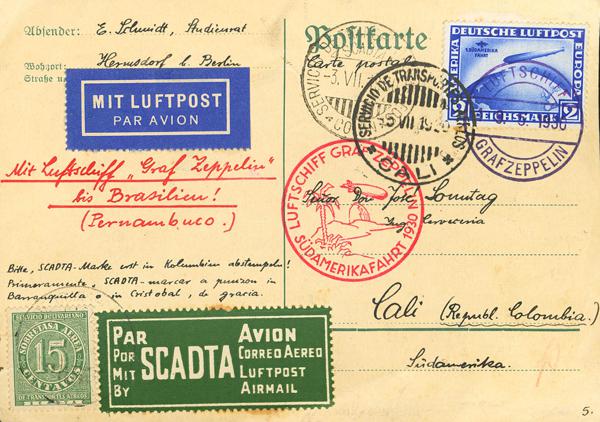 Absender: E. Schmidt, Studienrat
Wohnort: Hermsdorf b. Berlin
Straße
Postkarte
Carte postale
MIT LUFTPOST
PAR AVION
DEUTSCHE LUFTPOST
1. SÜDAMERIKA
FAHRT
EUROPA
2 REICHSMARK 2
LUFTSCHIFF
1930
GRAFZEPPELIN
SERVICIO DE TRANSPORTES
CALI
Mit Luftschiff „Graf Zeppelin"
bis Brasilien!
(Pernambuco.)
LUFTSCHIFF GRAF ZEPPELIN
SÜDAMERIKAFAHRT 1930
Señor Don José Sonntag
Cerveceria
Cali (Republ. Colombia.)
Südamerika.
Bitte, SCADTA-Marke erst in Kolumbien abstempeln!
Primeramente, SCADTA-marcar a punzon in
Barranquilla o in Cristobal, de gracia.
SERVICIO BOLIVARIANO
SOBRETASA AEREA
15
CENTAVOS
DE TRANSPORTES AEREOS
SCADTA
PAR AVION
POR CORREO AEREO
MIT LUFTPOST
BY AIRMAIL
SCADTA
5.